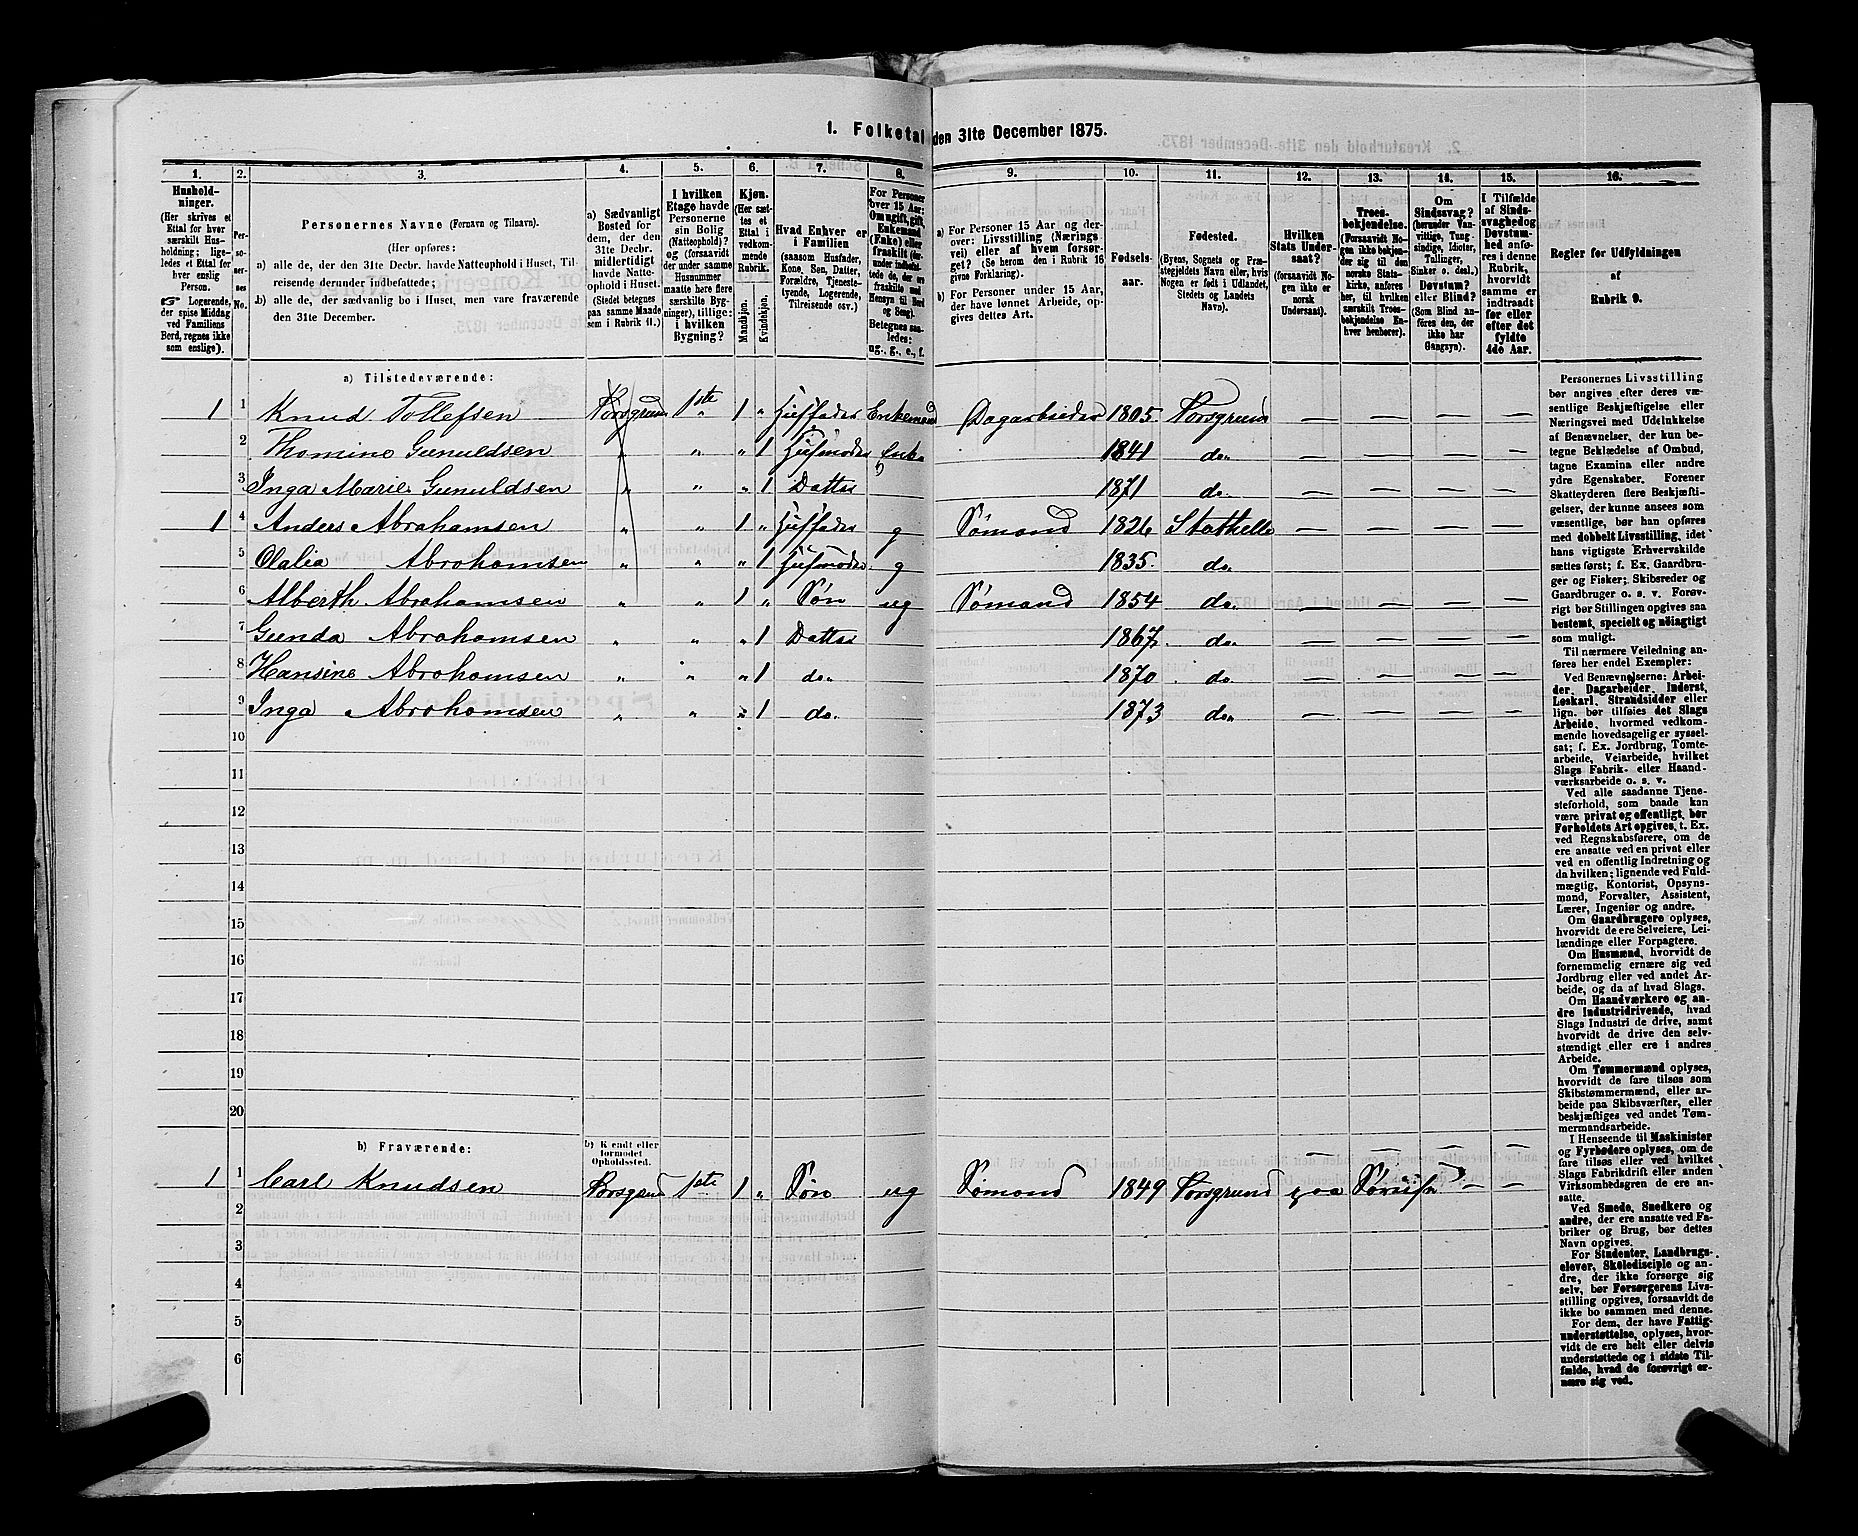 1. Folketal den 31te December 1875.
1. 2. 3. 4. 5. 6. 7. 8. 9. 10. 11. 12. 13. 14. 15. 16.
Hushold-
ninger.
(Her skrives et
Ettal for hver
særskilt Hus-
holdning; lige-
ledes et Ettal for
hver enslig
Person.
☞ Logerende,
der spise Middag
ved Familiens
Bord, regnes ikke
som enslige).
Per-
so-
ner-
nes
No.
Personernes Navne (Fornavn og Tilnavn).
(Her opføres:
a) alle de, der den 31te Decbr. havde Natteophold i Huset, Til-
reisende derunder indbefattede;
b) alle de, der sædvanlig bo i Huset, men vare fraværende
den 31te December.
a) Sædvanligt
Bosted for
dem, der den
31te Decbr.
midlertidigt
havde Natte-
ophold i Huset.
(Stedet betegnes
paa samme Maade
som i Rubrik 11.)
I hvilken
Etage havde
Personerne
sin Bolig
(Natteophold)?
og (forsaavidt
der under samme
Husnummer
maatte høre flere
særskilte Byg-
ninger), tillige:
i hvilken
Bygning?
Kjøn.
(Her sæt-
tes et
Ettal i
vedkom-
mende
Rubrik.)
Mandkjøn.
Kvindekjøn.
Hvad Enhver er
i Familien
(saasom Husfader,
Kone, Søn, Datter,
Forældre, Tjeneste-
tyende, Logerende,
Tilreisende osv.)
For Personer
over 15 Aar:
Om ugift, gift,
Enkemand
(Enke) eller
fraskilt (der-
under indbefat-
tede de, der ere
fraskilte med
Hensyn til Bord
og Seng).
Betegnes saa-
ledes:
ug., g., e., f.
a) For Personer 15 Aar og der-
over: Livsstilling (Nærings-
vei) eller af hvem forsør-
get? (Se herom den i Rubrik 16
givne Forklaring).
b) For Personer under 15 Aar,
der have lønnet Arbeide, op-
gives dettes Art.
Fødsels-
aar.
Fødested.
(Byens, Sognets og Præ-
stegjeldets Navn eller, hvis
Nogen er født i Udlandet,
Stedets og Landets
Navn).
Hvilken
Stats Under-
saat?
(forsaavidt No-
gen ikke er
norsk
Undersaat).
Troes-
bekjendelse.
(Forsaavidt No-
gen ikke bekjen-
der sig til den
norske Stats-
kirke, anføres
her, til hvilken
særskilt Troes-
bekjendelse En-
hver henhører).
Om
Sindssvag?
(herunder Van-
vittige, Tung-
sindige, Idioter,
Tullinger,
Sinker o. desl.)
Døvstum?
eller Blind?
(Som Blind an-
føres den, der
ikke har
Gangsyn).
I Tilfælde
af Sinds-
svaghed og
Døvstum-
hed anfø-
res i denne
Rubrik,
hvorvidt
samme er
indtraadt
før eller
efter det
fyldte
4de Aar.
Regler for Udfyldningen
af
Rubrik 9.
a) Tilstedeværende:
1 1 Knud Tollefsen Porsgrund 1ste 1 " Husfader Enkemand Dagarbeider 1805. Porsgrund
2 Thomine Gunuldsen " " " 1 Husmoder Enke 1841 do. — — — —
3 Inga Marie Gunuldsen " " " 1 Datter 1871 do. — — — —
1 4 Anders Abrahamsen " " 1 " Husfader g Sømand 1826 Stathelle — — — —
5 Olalia Abrahamsen " " " 1 Husmoder g 1835. do. — — — —
6 Alberth Abrahamsen " " 1 " Søn ug Sømand 1854 do. — — — —
7 Gunda Abrahamsen " " " 1 Datter 1867. do. — — — —
8 Hansine Abrahamsen " " " 1 do. 1870 do. — — — —
9 Inga Abrahamsen " " " 1 do. 1873 do. — — — —
10
11
12
13
14
15
16
17
18
19
20
b) Fraværende:
b) Kjendt eller
formodet
Opholdssted.
1 1 Carl Knudsen Porsgrund 1ste 1 " Søn ug Sømand 1849 Porsgrund paa — —
2
3
4
5
6
Personernes Livsstilling
bør angives efter deres væ-
sentlige Beskjæftigelse eller
Næringsvei med Udelukkelse
af Benævnelser, der kun be-
tegne Beklædelse af Ombud,
tagne Examina eller andre
ydre Egenskaber. Forener
Skatteyderen flere Beskjæfti-
gelser, der kunne ansees som
væsentlige, bør han opføres
med dobbelt Livsstilling, idet
hans vigtigste Erhvervskilde
sættes først; f. Ex. Gaardbru-
ger og Fisker; Skibsreder og
Gaardbruger o. s. v. Forøv-
rigt bør Stillingen opgives saa
bestemt, specielt og nøiagtigt
som muligt.
Til nærmere Veiledning an-
føres her endel Exempler:
Ved Benævnelserne: Arbei-
der, Dagarbeider, Inderst,
Løskarl, Strandsidder eller
lign. bør tilføies det Slags
Arbeide, hvormed vedkom-
mende hovedsagelig er syssel-
sat; f. Ex. Jordbrug, Tomte-
arbeide, Veiarbeide, hvilket
Slags Fabrik- eller Haand-
værksarbeide o. s. v.
Ved alle saadanne Tjene-
steforhold, som baade kan
være privat og offentligt, bør
Forholdets Art opgives, t. Ex.
ved Regnskabsførere, om de
ere ansatte ved en privat eller
ved en offentlig Indretning og
da hvilken; lignende ved Fuld-
mægtig, Kontorist, Opsyns-
mand, Forvalter, Assistent,
Lærer, Ingeniør og andre.
Om Gaardbrugere oplyses,
hvorvidt de ere Selveiere, Lei-
lændinge eller Forpagtere.
Om Husmænd, hvorvidt de
fornemmelig ernære sig ved
Jordbrug eller ved andet Ar-
beide, og da af hvad Slags.
Om Haandværkere og an-
dre Industridrivende, hvad
Slags Industri de drive, samt
hvorvidt de drive den selv-
stændigt eller ere i andres
Arbeide.
Om Tømmermænd oplyses,
hvorvidt de fare tilsøs som
Skibstømmermænd, eller ar-
beide paa Skibsværfter, eller
beskjæftiges ved andet Tøm-
mermandsarbeide.
I Henseende til Maskinister
og Fyrbødere oplyses, om de
fare tilsøs eller ved hvilket
Slags Fabrikdrift eller anden
Virksomhedsgren de ere an-
satte.
Ved Smede, Snedkere og
andre, der ere ansatte ved Fa-
briker og Brug, bør dettes
Navn opgives.
For Studenter, Landbrugs-
elever, Skoledisciple og an-
dre, der ikke forsørge sig
selv, bør Forsørgerens Livs-
stilling opgives, forsaavidt de
ikke bo sammen med denne.
For dem, der have Fattig-
understøttelse, oplyses, hvor-
vidt de ere helt eller delvis
understøttede og i sidste Til-
fælde, hvad de forøvrigt er-
nære sig ved.